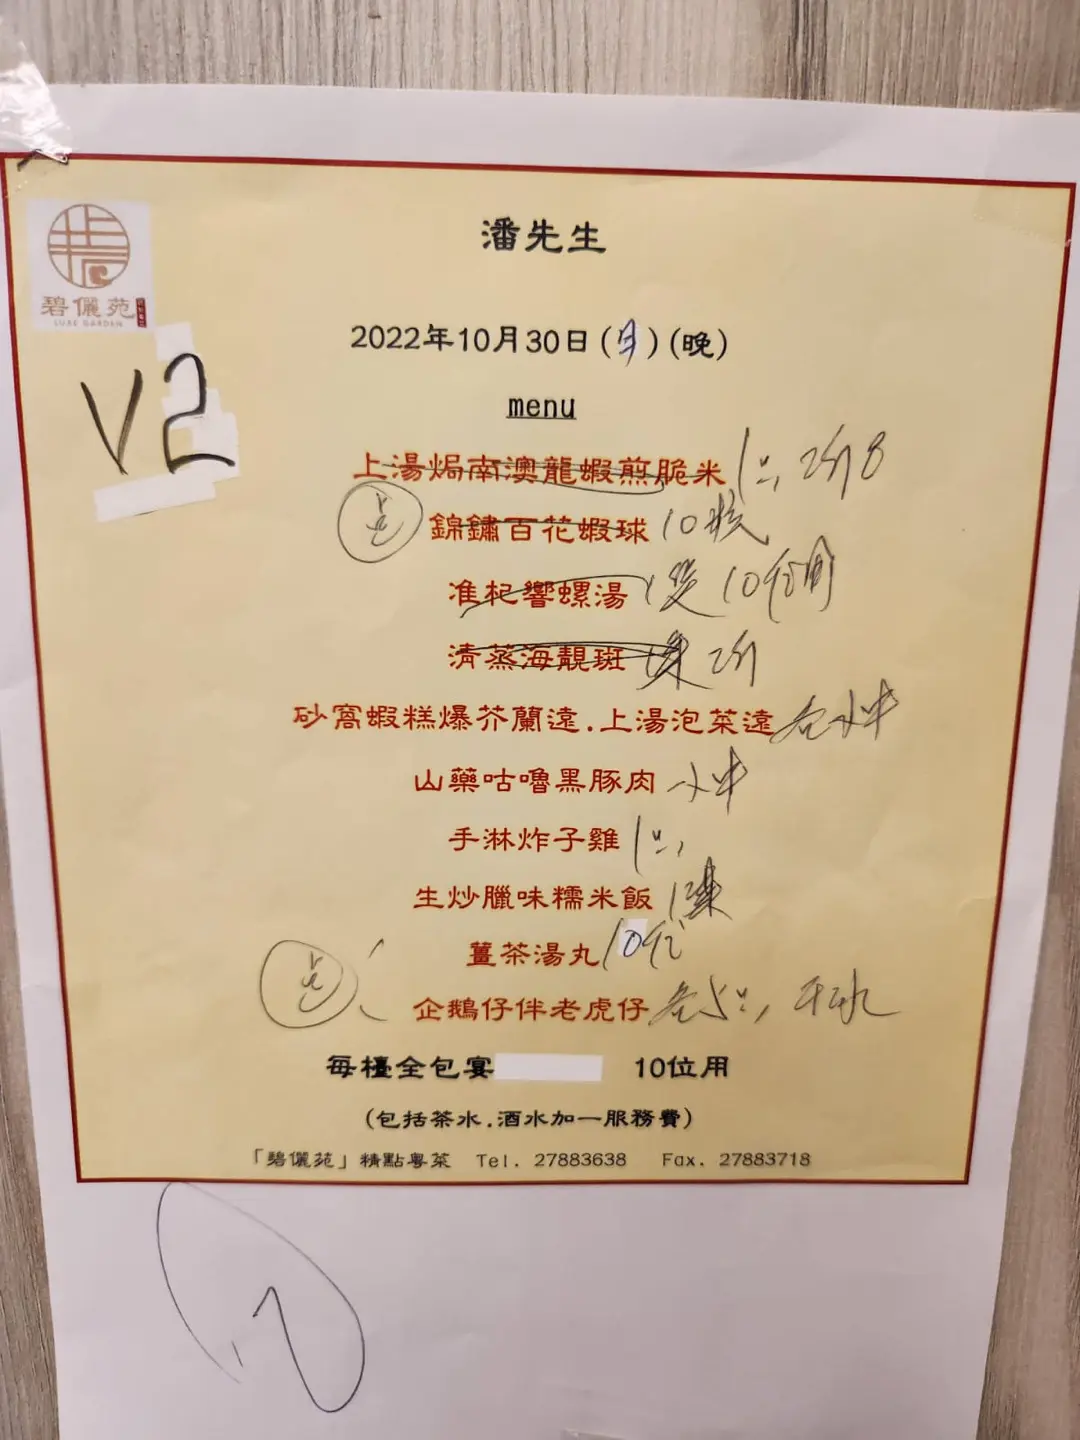 碧儷苑
LUXE GARDEN
潘先生
2022年10月30日(日)(晚)
V2
menu
上湯焗南澳龍蝦煎脆米 1只,
錦鏽百花蝦球 10
准杞響螺湯 10位用
清蒸海靚斑
砂窩蝦糕爆芥蘭遠.上湯泡菜遠
山藥咕嚕黑豚肉
手淋炸子雞 1只,
生炒臘味糯米飯
薑茶湯丸 10位
企鵝仔伴老虎仔
每檯全包宴 10位用
(包括茶水.酒水加一服務費)
「碧儷苑」精點粵菜 Tel. 27883638 Fax. 27883718